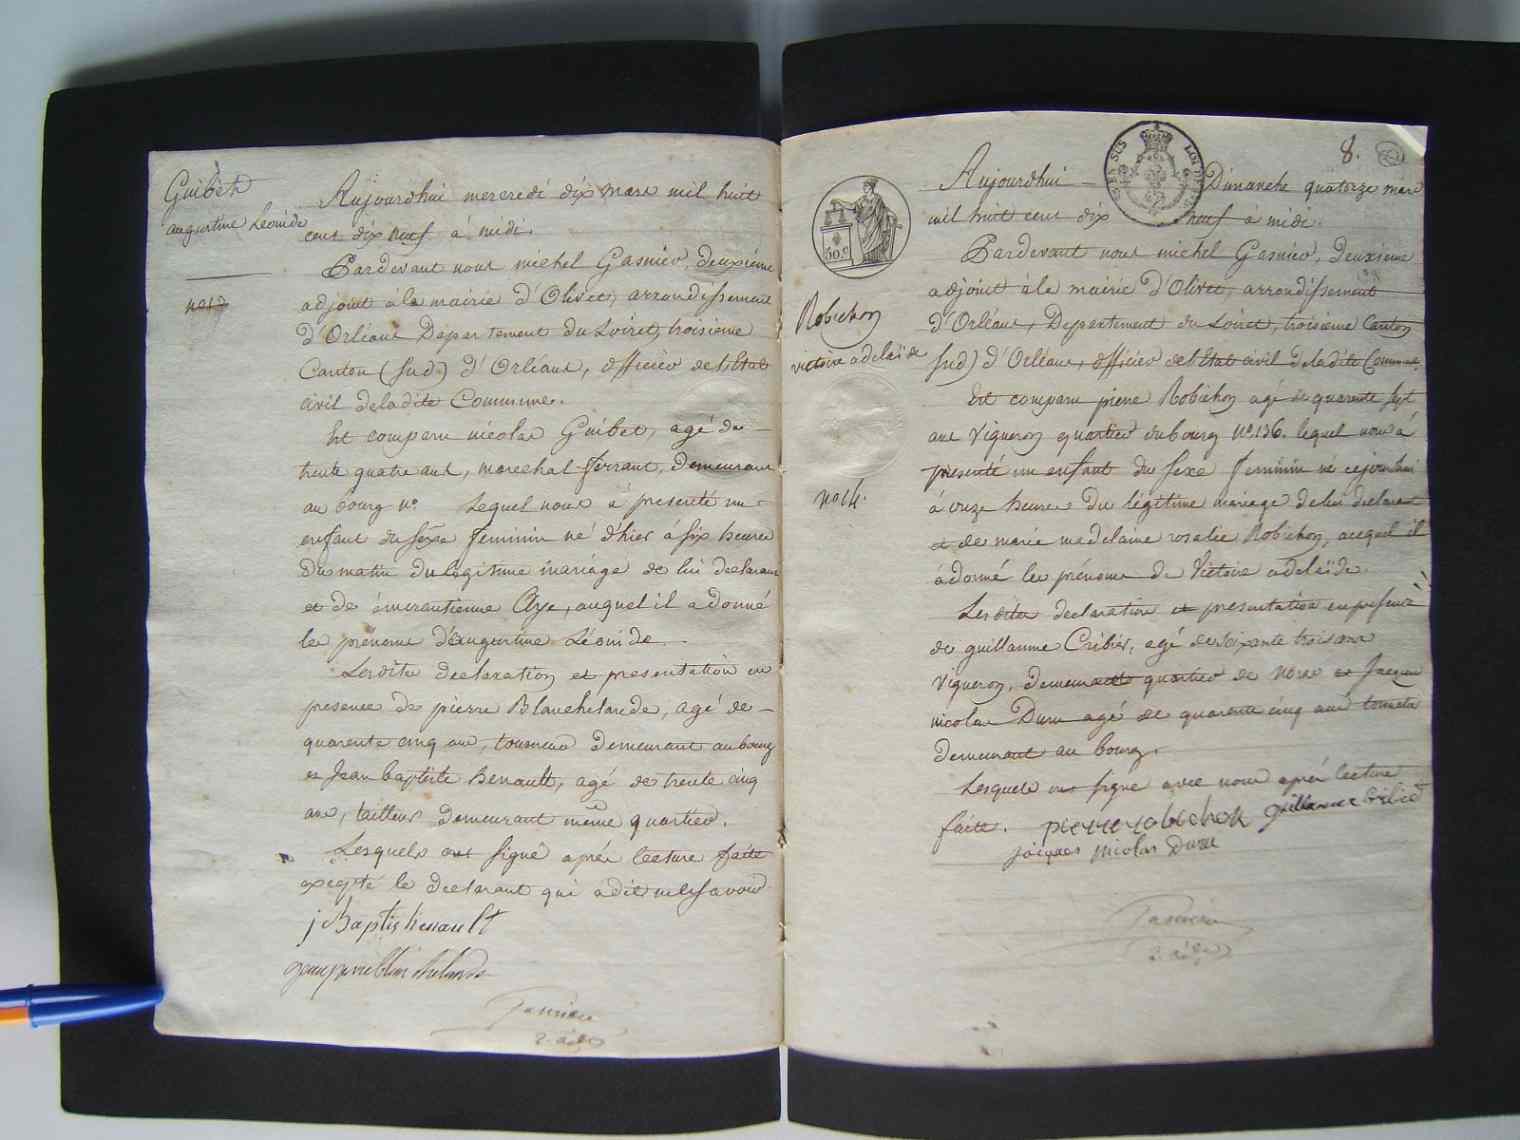 Guibet
augustine Léonide
no 13
Aujourdhui mercredi dix mars mil huit
cent dix neuf à midi.
Pardevant nous michel Gasnier, deuxiéme
adjoint à la mairie d'Olivet, arrondissement
d'Orléans Departement du Loiret, troisieme
Canton (Sud) d'Orléans, officier de l'Etat
civil de ladite Commune.
Est comparu nicolas Guibet, agé de
trente quatre ans, marechal-ferrant, demeurant
au bourg no lequel nous à presenté un
enfant du sexe feminin né d'hier à six heures
du matin du légitime mariage de lui declarant
et de émerantienne Aye, auquel il a donné
les prenoms d'augustine Léonide
Lesdites declaration et presentation en
presence de pierre Blanchelande, agé de
quarente cinq ans, tourneur demeurant au bourg
et Jean baptiste henault, agé de trente cinq
ans, tailleur demeurant même quartier.
Lesquels ont signé aprés lecture faite
excepté le declarant qui a dit ne le savoir
j Baptis henault
Gasnier
2. adj
8.
SUS
Aujourdhui Dimanche quatorze mars
mil huit cent dix neuf à midi.
Pardevant nous michel Gasnier, Deuxieme
adjoint à la mairie d'Olivet, arrondissement
d'Orléans, Departement du Loiret, troisieme Canton
Sud) d'Orléans, officier de l'Etat civil de ladite Commune.
50.c
Robichon
victoire adelaïde
no 14.
Est comparu pierre Robichon agé de quarente sept
ans vigneron quartier du bourg No. 136. lequel nous à
presenté un enfant du sexe feminin né cejourdhui
à onze heures du légitime mariage de lui declarant
et de marie madelaine rosalie Robichon, auquel il
à donné les prénoms de Victoire adelaïde.
Lesdites declaration et presentation en presence
de guillaume Cribier, agé de soixante trois ans
vigneron, demeurant quartier de et Jacques
nicolas Duru agé de quarente cinq ans tonnelier
demeurant au bourg.
Lesquels ont signé avec nous aprés lecture
faite. pierre robichon guillaume Cribier
jacques nicolas Duru
Gasnier
2. adj